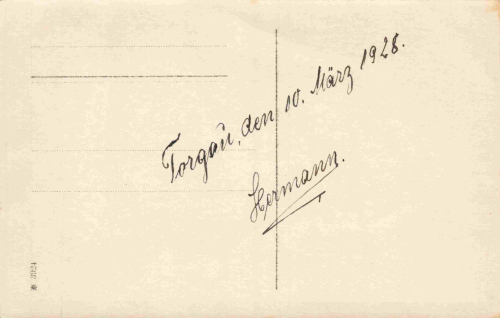 Torgau, den 10. März 1928.
Hermann.
31824